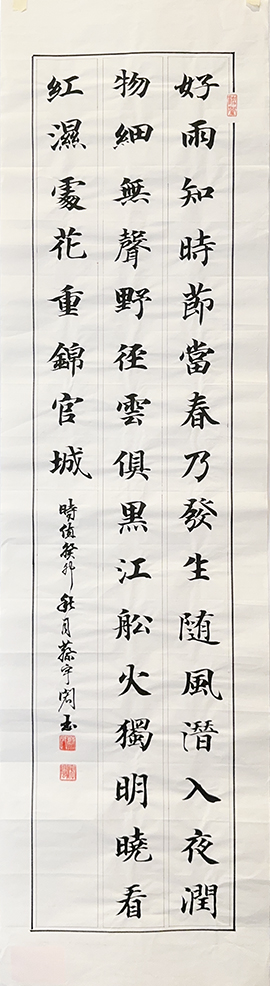 好雨知時節當春乃發生随風潛入夜潤
物細無聲野徑雲俱黑江船火獨明曉看
紅濕處花重錦官城
時值癸卯秋月蔡宇閣書